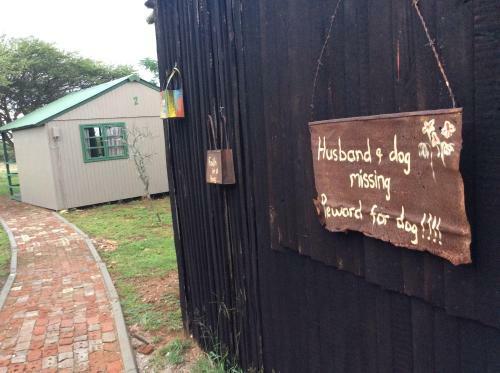 Husband & dog
missing
Reward for dog!!!!
2